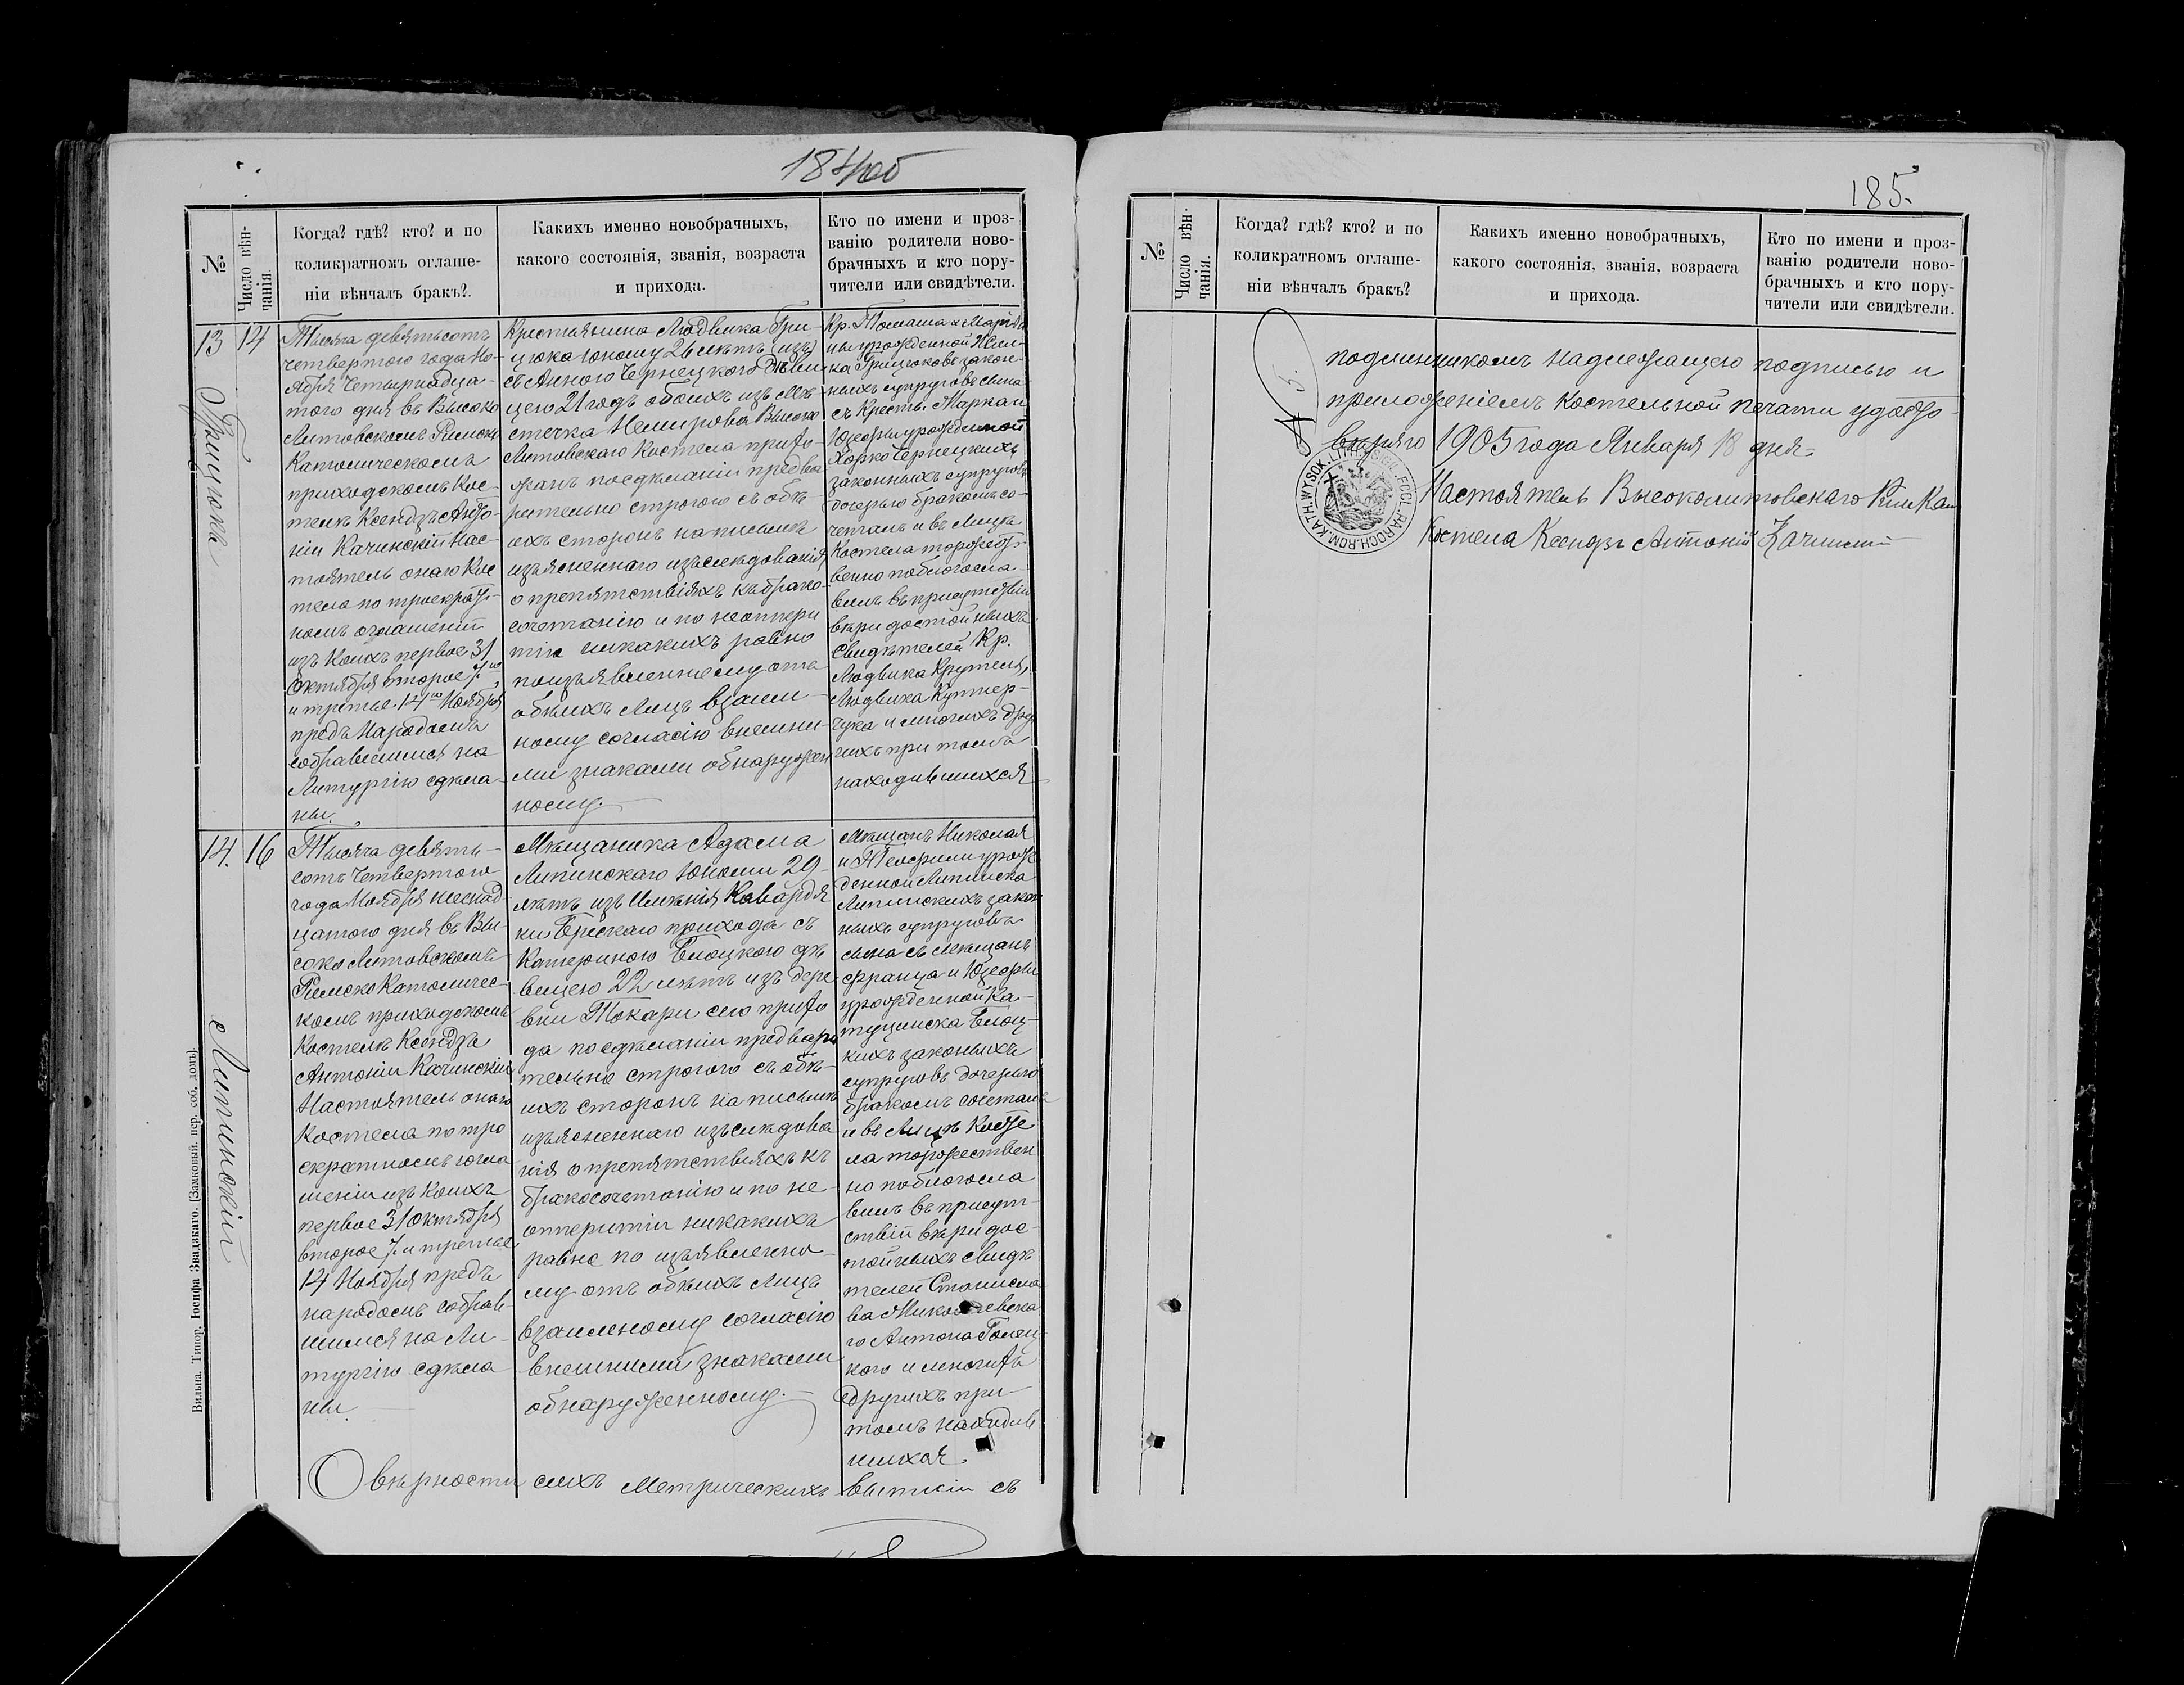 184об
№
Число вѣн-
чанія.
Когда? гдѣ? кто? и по
коликратномъ оглаше-
ніи вѣнчалъ бракъ?.
Какихъ именно новобрачныхъ,
какого состоянія, званія, возраста
и прихода.
Кто по имени и проз-
ванію родители ново-
брачныхъ и кто пору-
чители или свидѣтели.
13
14
Грицюка
Тысяча девятьсотъ
четвертого года Но-
ября четырнадца-
того дня въ Высоко
Литовскомъ Римско
Католическомъ
приходскомъ Кос-
телѣ Ксендзъ Анто-
ній Качинскій Нас-
тоятель онаго Кос
тела по троекрат-
номъ оглашеніи
изъ коихъ первое 31
Октября второе 7го
и третье 14го Ноября
предъ Народомъ
собравшимся на
Литургію сдѣла-
ны.
Крестьянина Людвика Гри-
цюка юношу 26 лѣтъ (изъ)
съ Анною Чернецкого дѣви
цею 21 годъ обоихъ изъ мѣ-
стечка Немирова Высоко
Литовскаго Костела прихо-
жанъ посдѣланіи предва
рительно строгого съ обѣ-
ихъ сторонъ написьмѣ
изъясненнаго изъслѣдованія
о препятствіяхъ къ брако-
сочетанію и по неоткры
тіи никакихъ равно
поизъявленному отъ
обѣихъ Лицъ взаим-
ному согласію внѣшни-
ми знаками обнаружен
ному.
Кр. Томаша и Маріан
ны урожденной
ка Грицюковъ закон-
ныхъ супруговъ сына
съ Крестья. Марка и
Юзефы урожденной
Хорко Чернецкихъ
законныхъ супруговъ
дочерью бракомъ со-
четалъ и въ Лицѣ
Костела торжест-
венно поблогосла-
вилъ въ присутствіи
вѣри достойныхъ
Свидѣтелей Кр.
Людвика Крутеля,
Людвика Купнер-
чука и многихъ дру
гихъ при томъ
находившихся
14.
16
Липинскій
Тысяча девять-
сотъ четвертого
года Ноября шеснад
цатого дня въ Вы-
соко Литовскомъ
Римско Католичес-
комъ приходскомъ
Костелѣ Ксендзъ
Антоній Качинскій
Настоятель онаго
Костела по тро
екратномъ огла
шеніи изъ коихъ
первое 31 Октября
второе 7 и третье
14 Ноября предъ
народомъ собрав-
шимся на Ли-
тургію сдѣла
ны.
Мѣщанина Адама
Липинскаго юношу 29-
лѣтъ изъ Имѣнія Кавардя
ки Брескаго прихода съ
Катериною Блоцкого дѣ
вицею 22 лѣтъ изъ дере
вни Токари сего прихо
да посдѣланіи предвари
тельно строгого съ обѣ-
ихъ сторонъ написьмѣ
изъясненнаго изъслѣдова
нія о препятствіяхъ къ
бракосочетанію и по не-
открытіи никакихъ
равно по изъявленно-
му отъ обѣихъ Лицъ
взаимному согласію
внешними знаками
обнаруженному.
Мѣщанъ Николая
и Теофили урож
денной Липинска
Липинскихъ закон
ныхъ супруговъ
сына съ мѣщанъ
Франца и Юзефы
урожденной Ка-
тущинска Блоц-
кихъ законыхъ
супруговъ дочерью
бракомъ сочеталъ
и въ Лицѣ Косте
ла торжествен
но поблогосла
вилъ въ присут-
ствіи вѣри дос-
тойныхъ Свидѣ
телей Станисла
ва
го Антона Голец-
кого и многихъ
другихъ при-
томъ находив
шихся.
О вѣрности сихъ Метрическихъ выписи съ
Вильна. Типор. Іосифа Завадзкаго. [Замковый пер. соб. домъ].
185.
№
Число вѣн-
чанія.
Когда? гдѣ? кто? и по
коликратномъ оглаше-
ніи вѣнчалъ бракъ?
Какихъ именно новобрачныхъ,
какого состоянія, званія, возраста
и прихода.
Кто по имени и проз-
ванію родители ново-
брачныхъ и кто пору-
чители или свидѣтели.
подлинникомъ надлежащею подписью и
приложеніемъ Костельной печати удосто-
вѣряю 1905 года Января 18 дня.
Настоятель Высоколитовскаго Рим Кат
Костела Ксендзъ Антоній Качинскій